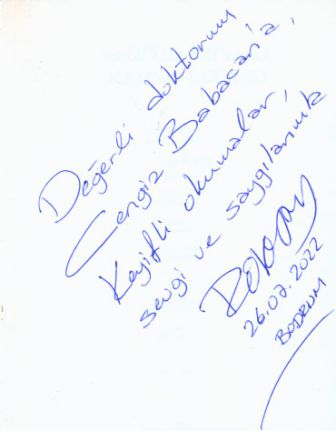 Değerli doktorum
Cengiz Babacan'a,
Keyifli okumalar,
sevgi ve saygılarımla
26.07.2022
BODRUM